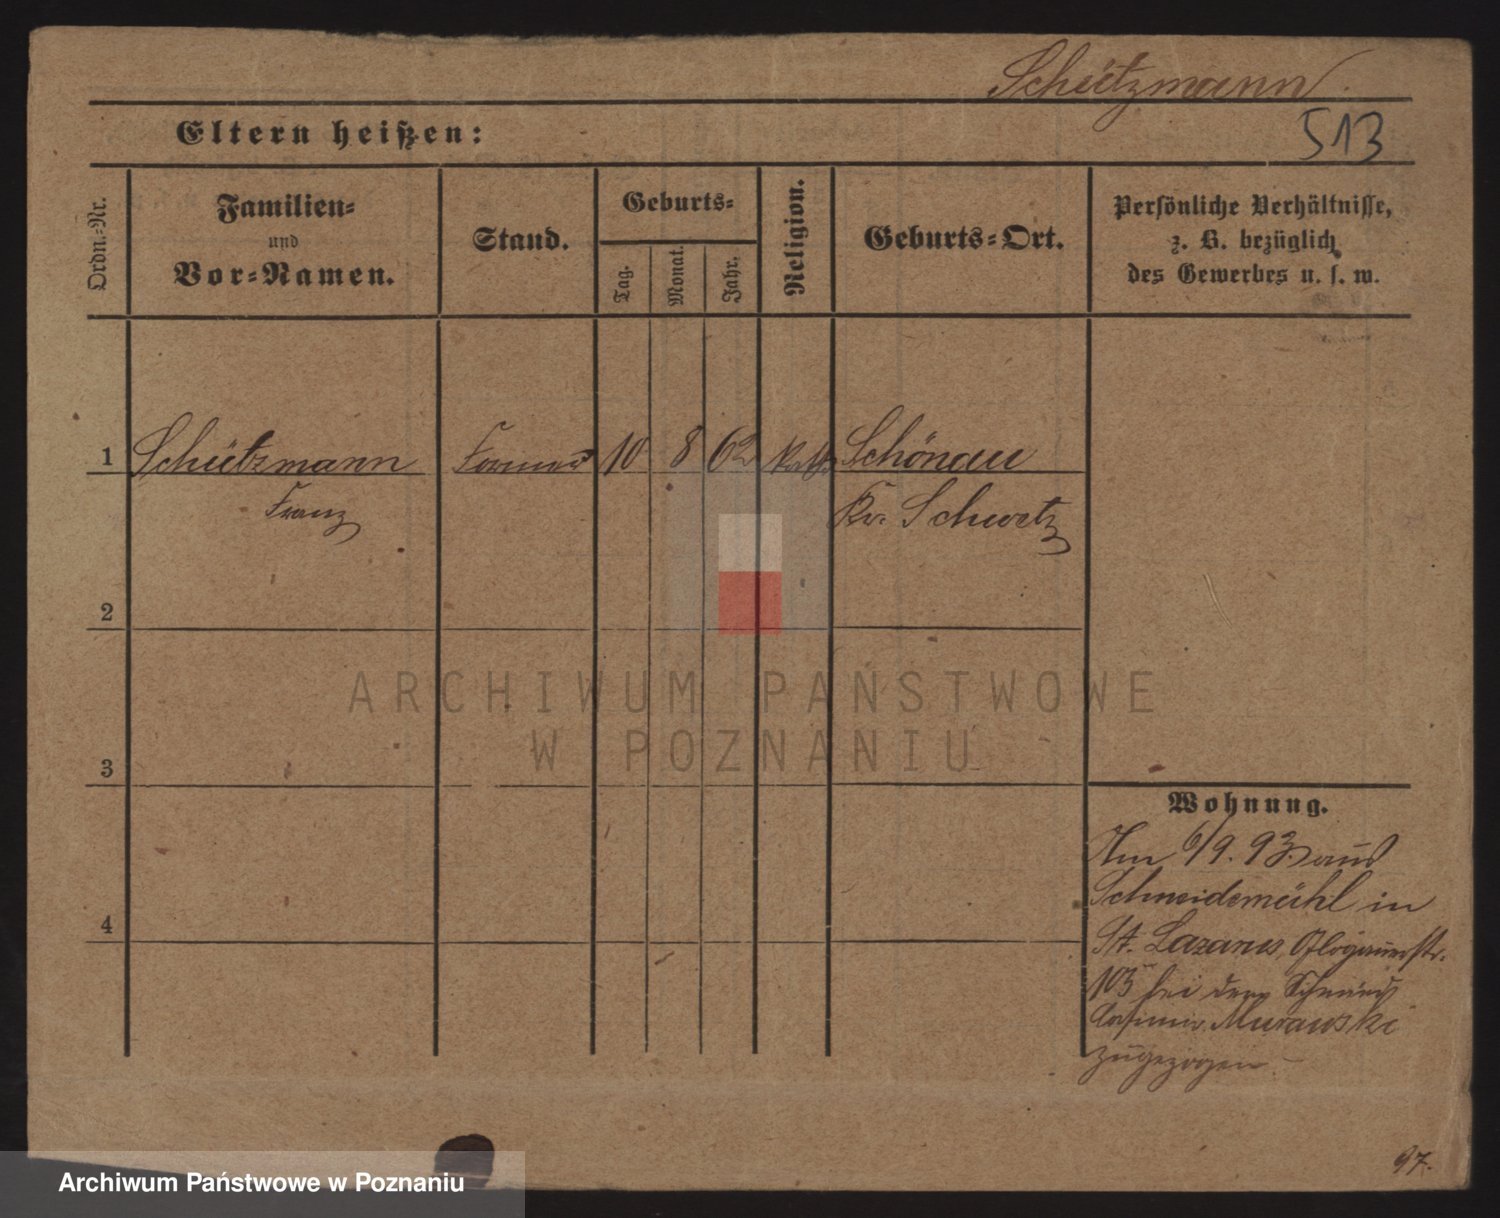 Schützmann.
513
Eltern heißen:
Ordn.-Nr.
Familien-
und
Vor-Namen.
Stand.
Geburts-
Tag.
Monat.
Jahr.
Religion.
Geburts-Ort.
Persönliche Verhältnisse,
z. B. bezüglich
des Gewerbes u. s. w.
1 Schützmann Former 10 8 62 Kath. Schönau
Franz Kr. Schwetz
2
ARCHIWUM PAŃSTWOWE
W POZNANIU
3
Wohnung.
Am 6/9. 93 aus
Schneidemühl in
St. Lazarus, Glogauerstr.
105 bei dem Schmied
Casimir Murawski
zugezogen.
4
97.
Archiwum Państwowe w Poznaniu